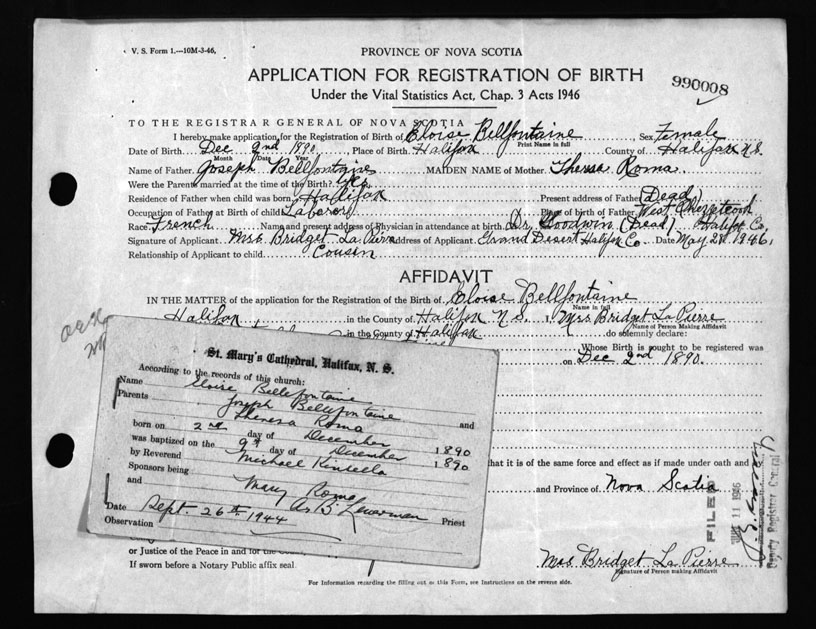 V. S. Form 1.—10M-3-46.
PROVINCE OF NOVA SCOTIA
APPLICATION FOR REGISTRATION OF BIRTH
990008
Under the Vital Statistics Act, Chap. 3 Acts 1946
TO THE REGISTRAR GENERAL OF NOVA SCOTIA
I hereby make application for the Registration of Birth of Eloise Bellfontaine, Sex Female
Print Name in full
Date of Birth Dec 2nd 1890, Place of Birth Halifax County of Halifax N.S.
Month Date Year
Name of Father Joseph Bellfontaine MAIDEN NAME of Mother Theresa Roma
Were the Parents married at the time of the Birth? Yes
Residence of Father when child was born Halifax Present address of Father (Dead)
Occupation of Father at Birth of child Laborer Place of Birth of Father West Chezetcook
Race French Name and present address of Physician in attendance at birth Dr. Goodwin (Dead) Halifx Co.
Signature of Applicant Mrs. Bridget La Pierre Address of Applicant Grand Desert Halifax Co. Date May 28 1946.
Relationship of Applicant to child Cousin
AFFIDAVIT
IN THE MATTER of the application for the Registration of the Birth of Eloise Bellfontaine
Name in full
Halifax in the County of Halifax N S. I, Mrs Bridget La Pierre
Name of Person Making Affidavit
in the County of Halifax do solemnly declare:
Whose Birth is sought to be registered was
on Dec 2nd 1890.
St. Mary's Cathedral, Halifax, N. S.
According to the records of this church:
Name Eloise Bellefontaine
Parents Joseph Bellefontaine and
Theresa Roma
born on 2nd day of December 1890
was baptized on the 9th day of December 1890
by Reverend Michael Kinsella
Sponsors being
and Mary Roma
Priest
Date Sept. 26th 1944
Observation
that it is of the same force and effect as if made under oath and
and Province of Nova Scotia
FILED
11 1946
Deputy Registrar General
or Justice of the Peace in and for the
If sworn before a Notary Public affix seal.
Mrs Bridget La Pierre
Signature of Person making Affidavit
For Information regarding the filling out of this Form, see Instructions on the reverse side.